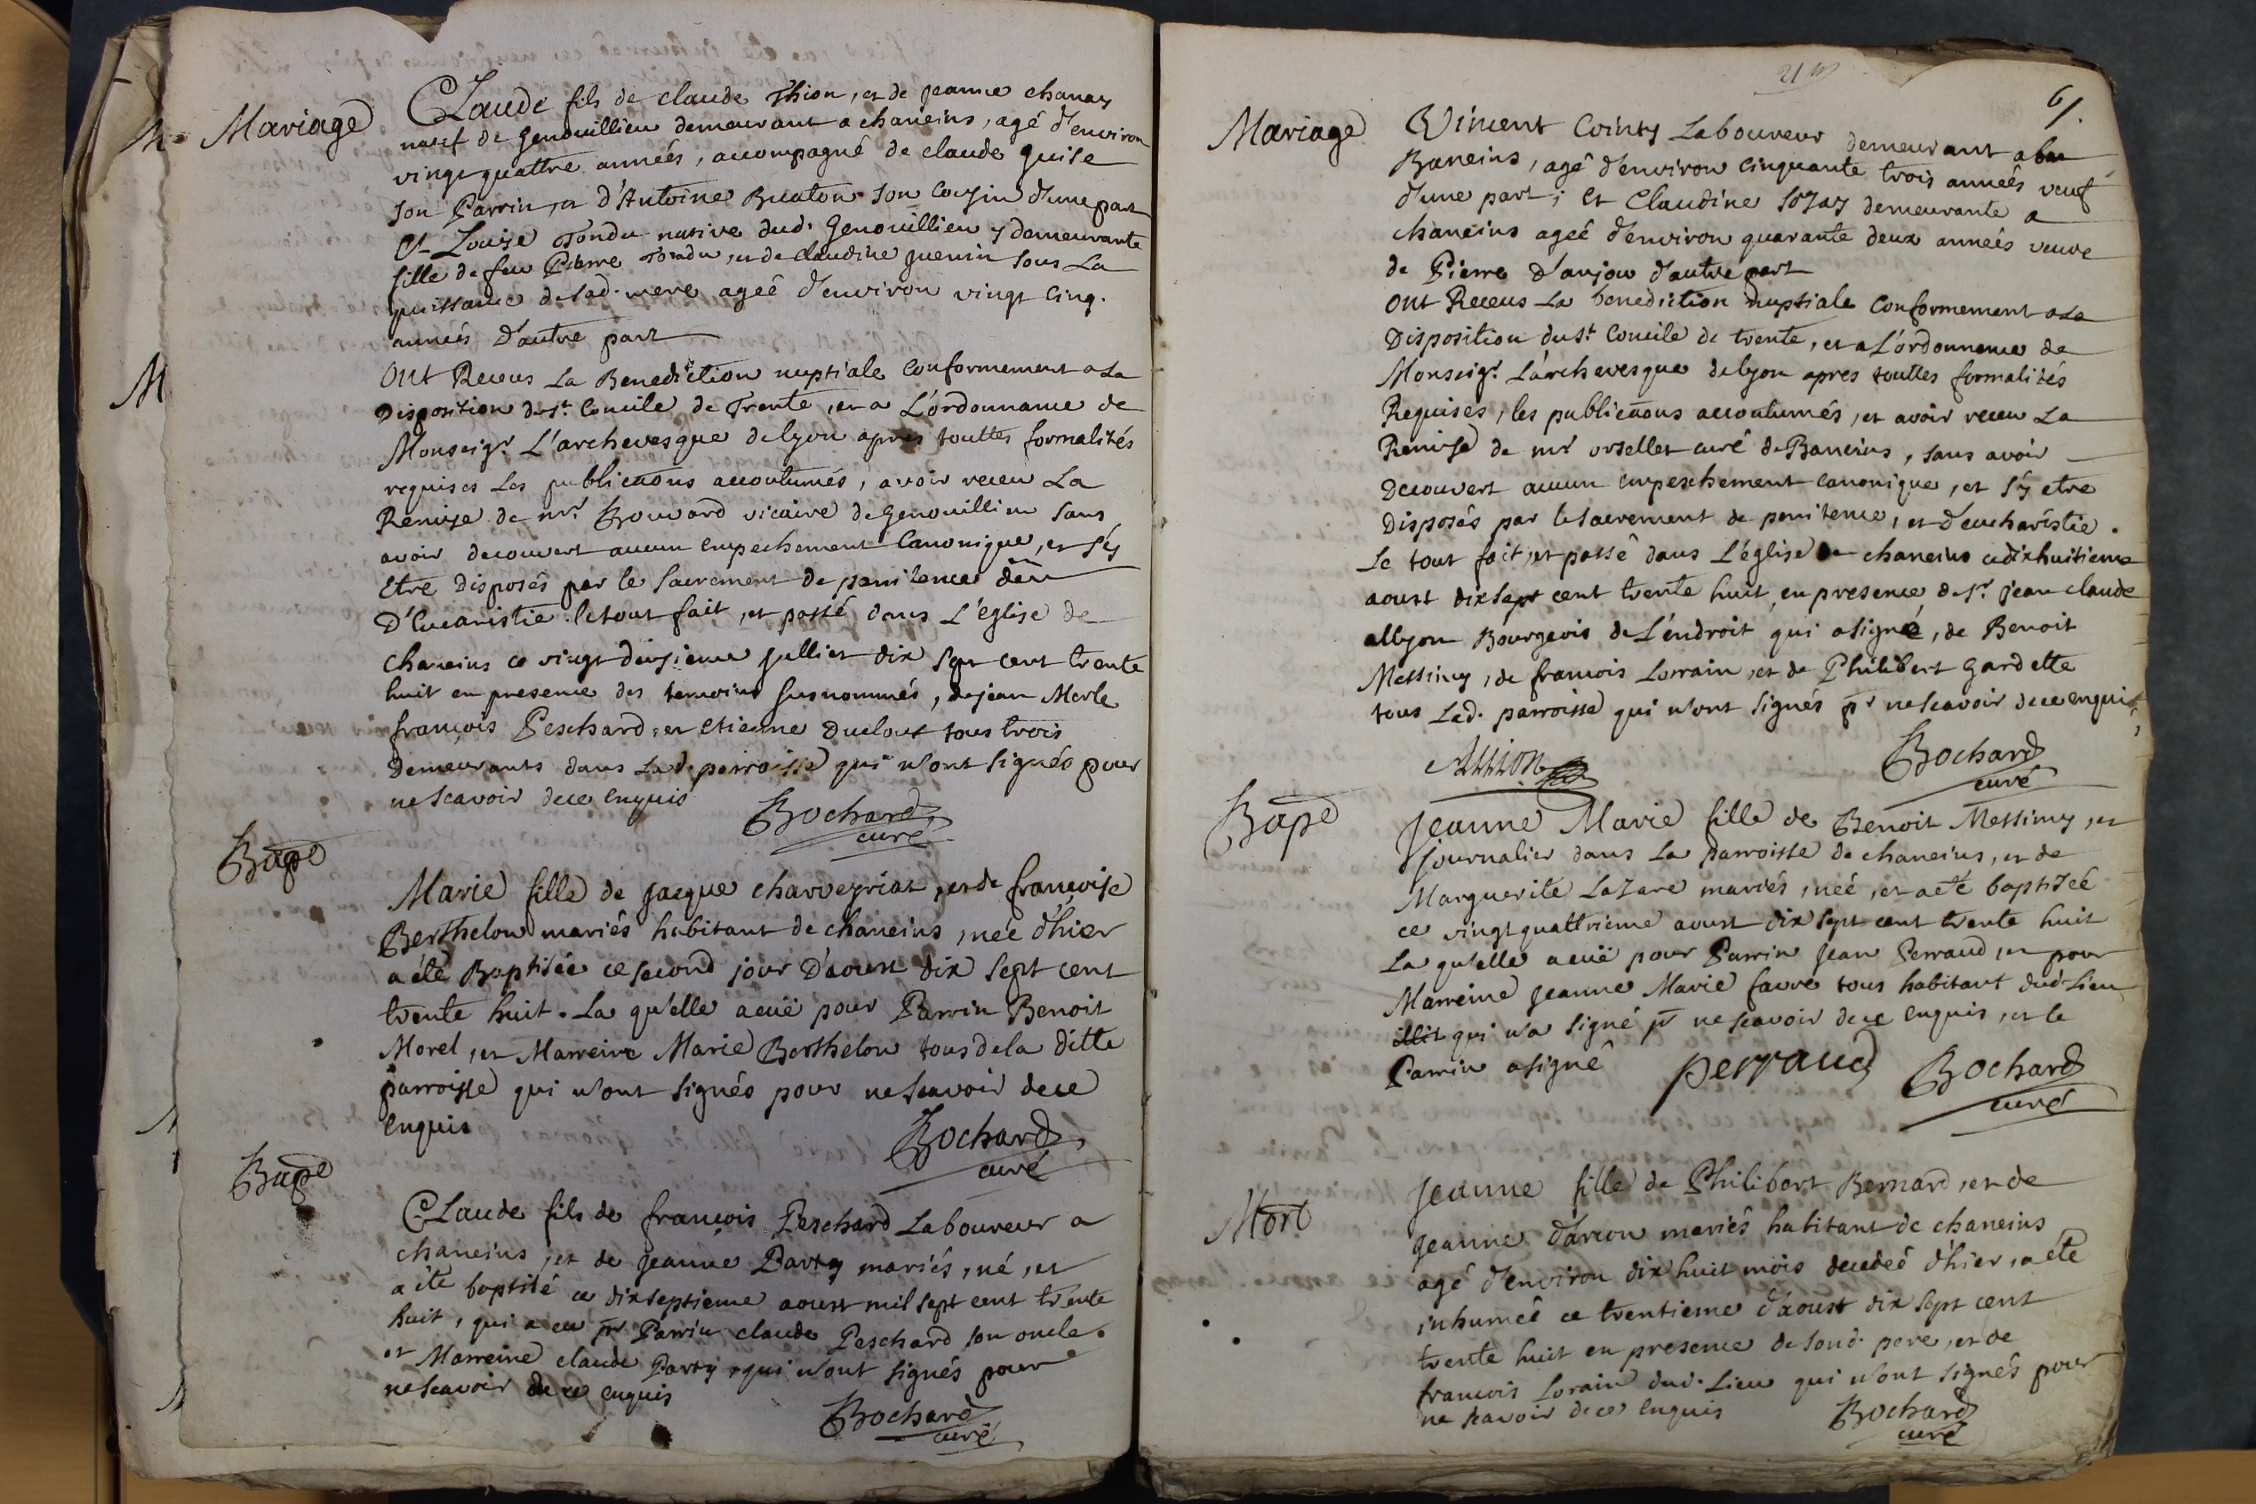 Mariage
Claude fils de claude Thion, et de jeanne chanay
natif de Genouillieu demeurant a chaneins, agé d'environ
vingt quattre années, accompagné de claude guise
son Parrin, et d'Antoine Buaton son cousin d'une part
Et Louise Tondu native dud. Genouillieu y demeurante
fille de feu Pierre Tondu, et de claudine guenin sous La
puissance de sad. mere ageé d'environ vingt cinq.
années d'autre part
ont Receus La Benediction nuptiale conformement a La
Disposition du St. Concile de Trente, et a L'ordonnance de
Monseigr. L'archevesque de lyon apres touttes formalités
requises Les publications accoutumés, avoir receu La
Remise de mr. Brouard vicaire de Genouillieu sans
avoir decouvert aucun empechement Canonique, et s'ÿ
Etre Disposés par le sacrement de penitence
D'Eucaristie. le tout fait, et passé dans L'eglise de
chaneins ce vingt deuxieme julliet dix sept cent trente
huit en presence des temoins susnommés, de jean Merle
françois Peschard, et etienne duclout tous trois
demeurants dans Lad. parroisse qui n'ont signés pour
ne scavoir de ce enquis
Bochard
curé
Bape
Marie fille de jacque charveyriat, et de françoise
Berthelon mariés habitant de chaneins, neé d'hier
a été Baptiseé ce second jour D'aoust dix sept cent
trente huit. La qu'elle a euë pour Parrin Benoit
Morel, et Marreine Marie Berthelon tous de la ditte
parroisse qui n'ont signés pour ne scavoir de ce
enquis
Bochard
curé
Bape
Claude fils de françois Peschard Laboureur a
chaneins, et de jeanne Party mariés, né, et
a été baptisé ce dixseptieme aoust mil sept cent trente
huit, qui a eu pr Parrin claude Peschard son oncle.
et Marreine claude Party, qui n'ont signés pour
ne scavoir de ce enquis
Bochard
curé
61.
Mariage
Vincent Cointy Laboureur demeurant a
Baneins, agé d'environ cinquante trois années veuf
d'une part; et Claudine Sozay demeurante a
chaneins ageé d'environ quarante deux années veuve
de Pierre D'anjou d'autre part
ont Receus La benediction nuptiale conformement a La
Disposition du St. Concile de trente, et a L'ordonnance de
Monseigr. L'archevesque de lyon apres touttes formalités
Requises, les publications accoutumés, et avoir receu La
Remise de mr orsellet curé de Baneins, sans avoir
decouvert aucun empeschement canonique, et s'ÿ etre
Disposés par le sacrement de penitence, et d'eucharistie.
Le tout fait, et passé dans L'église de chaneins ce dixhuitieme
aoust dix sept cent trente huit, en presence de sr. jean claude
allyon Bourgeois de L'endroit qui a signé, de Benoit
Messimy, de françois Lorrain, et de Philibert Gardette
tous Lad. parroisse qui n'ont signés pr ne scavoir de ce enquis
Allion
Bochard
curé
Bape
Jeanne Marie fille de Benoit Messimy, et
journalier dans La parroisse de chaneins, et de
Marguerite Lazare mariés, neé, et a eté baptiseé
ce vingt quattrieme aoust dix sept cent trente huit
La qu'elle a euë pour Parrin Jean Perraud, et pour
Marreine Jeanne Marie favre tous habitant dud. Lieu
illit qui n'a signé pr ne scavoir de ce enquis, et le
Parrin a signé
perraud
Bochard
curé
Mort
Jeanne fille de Philibert Bernard, et de
Jeanne darcon mariés habitant de chaneins
agé d'environ dix huit mois decedeé d'hier, a été
inhumeé ce trentieme d'aoust dix sept cent
trente huit en presence de sond. pere, et de
françois Lorain dud. Lieu qui n'ont signés pour
ne scavoir de ce enquis
Bochard
curé